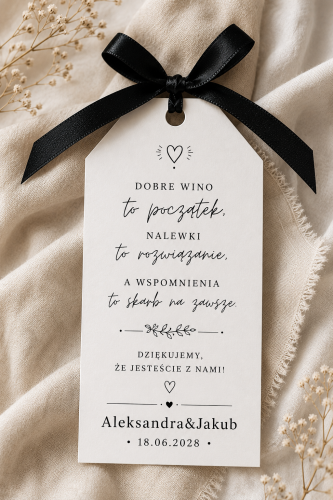 DOBRE WINO
to początek,
NALEWKI
to rozwiązanie,
A WSPOMNIENIA
to skarb na zawsze.
DZIĘKUJEMY,
ŻE JESTEŚCIE Z NAMI!
Aleksandra&Jakub
• 18.06.2028 •